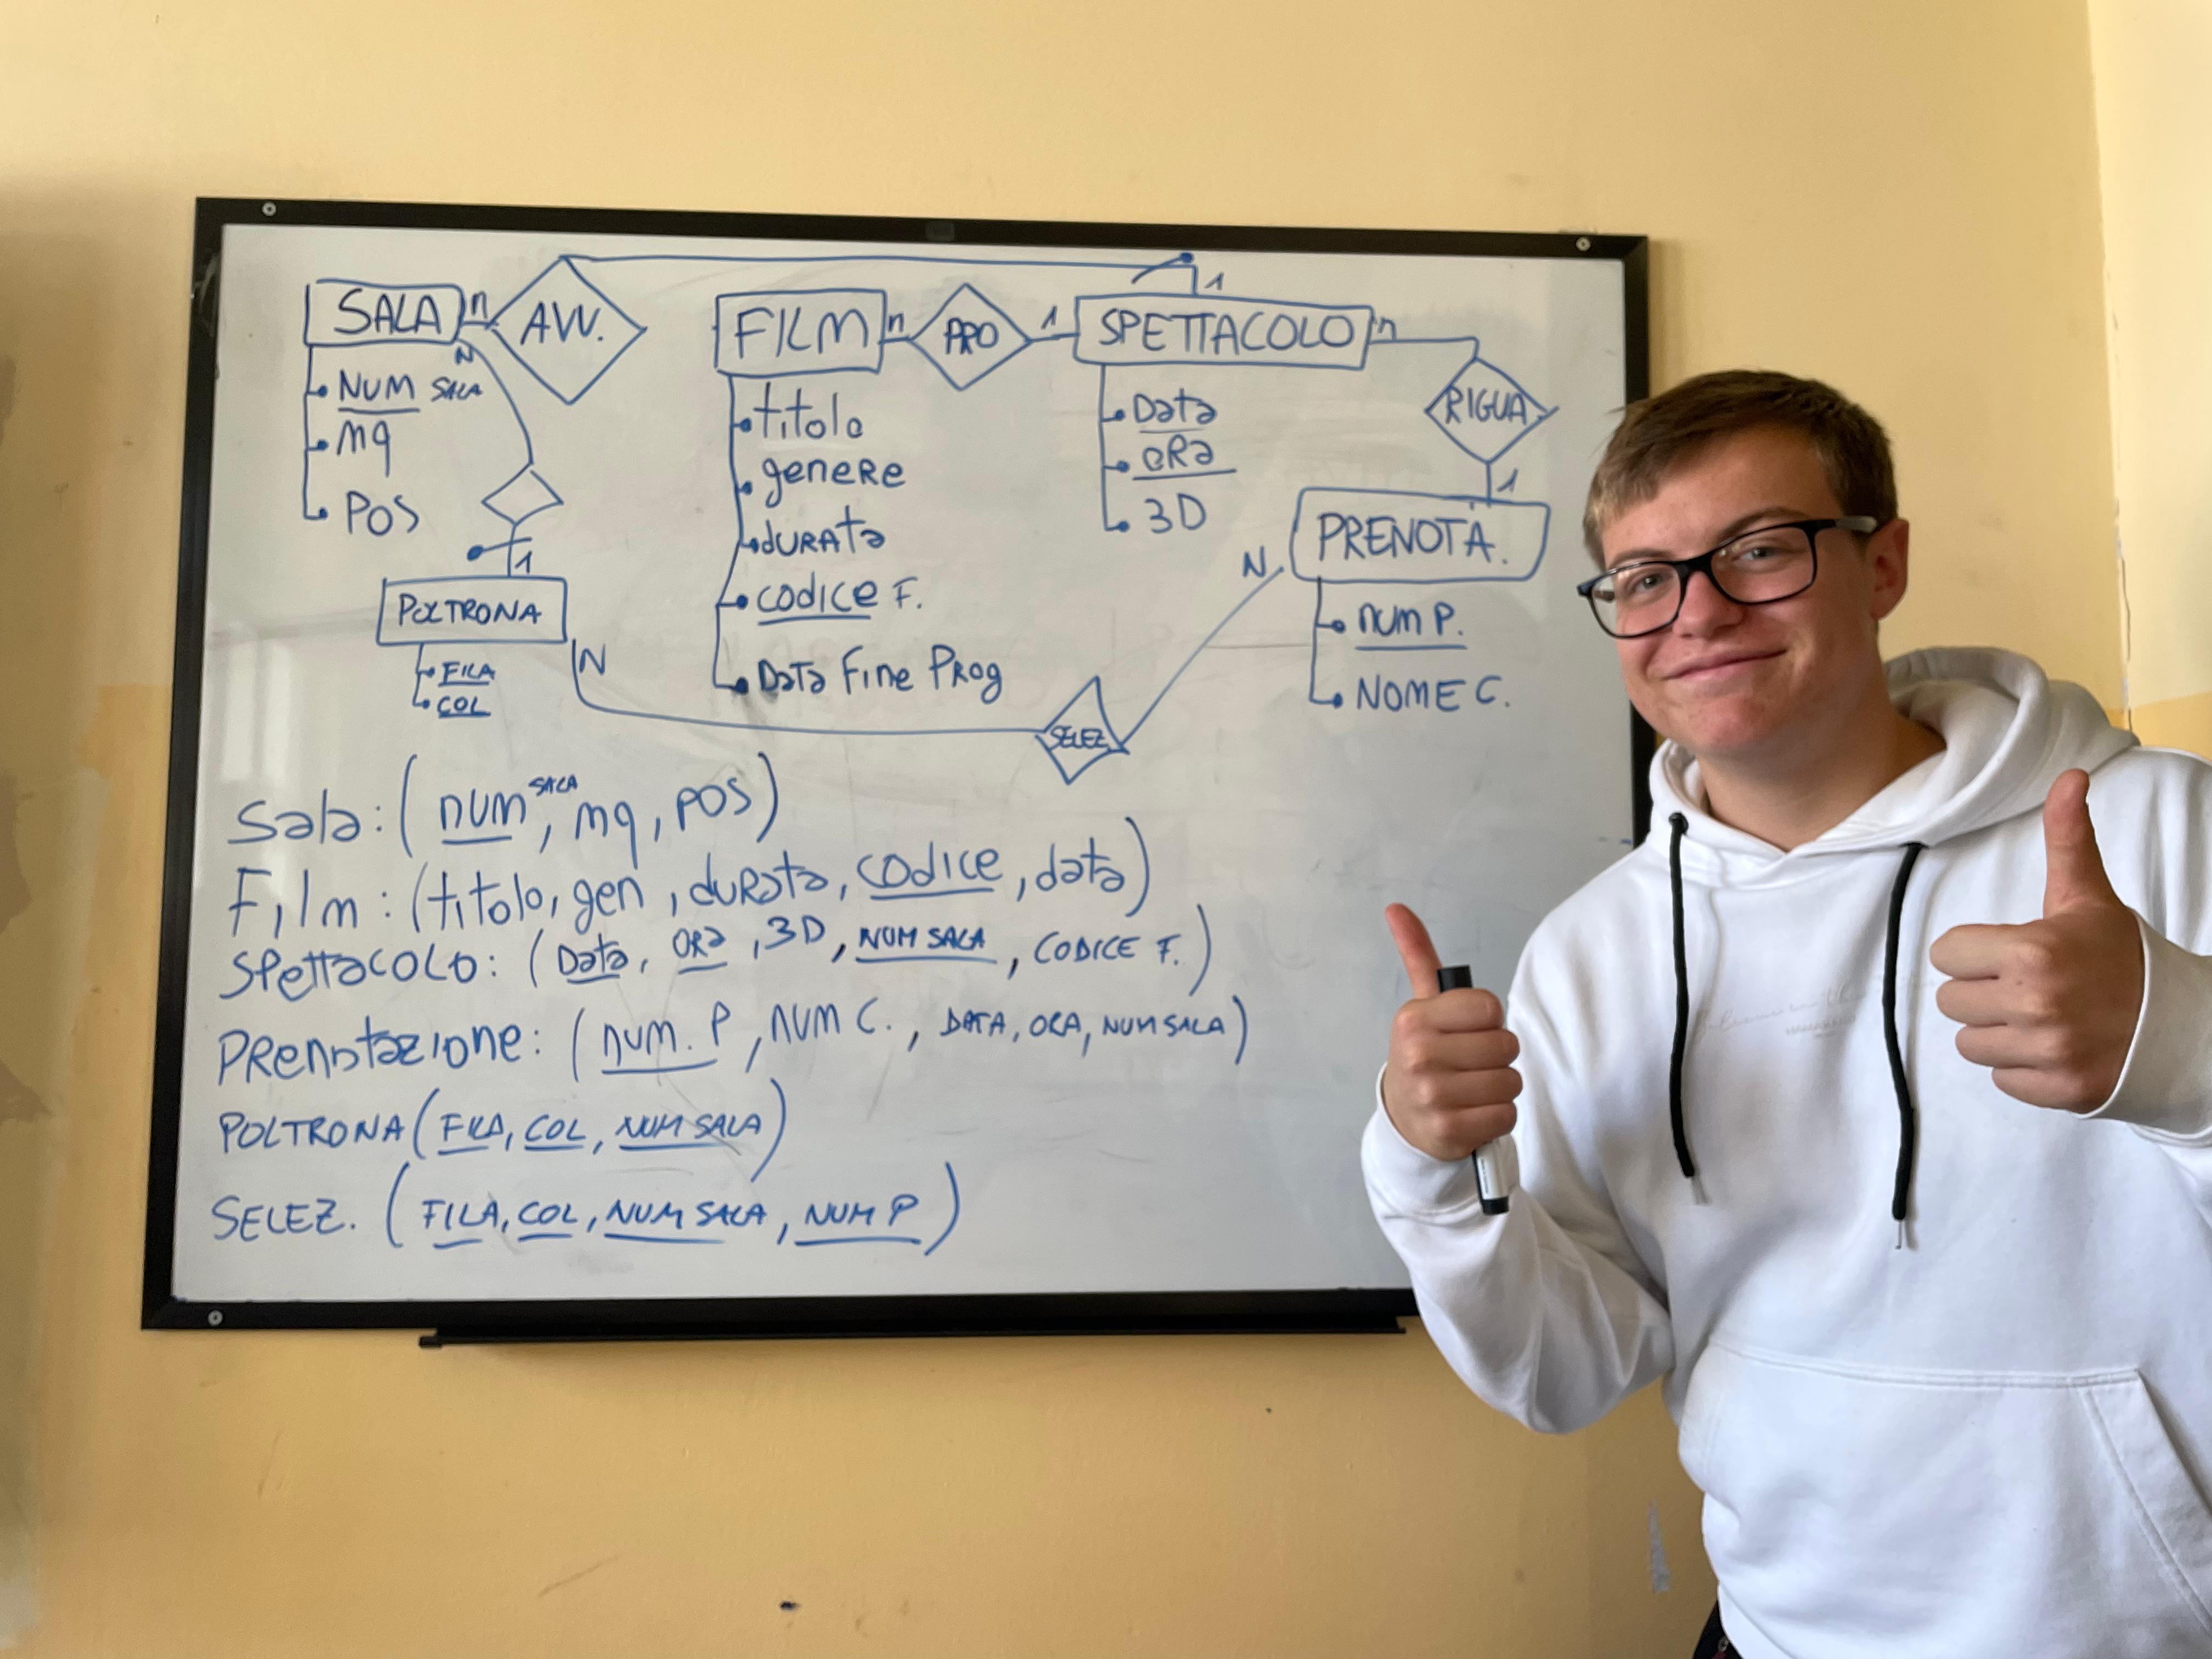 SALA n AVV. 1
FILM n PRO 1 SPETTACOLO n
RIGUA
1
N
NUM SALA
mq
POS
1
POLTRONA
FILA
COL
N
titolo
genere
durata
codice F.
Data Fine Prog
Data
ORa
3D
PRENOTA.
N
num P.
NOME C.
SELEZ
Sala: (num SALA, mq, POS)
Film: (titolo, gen, durata, codice, data)
SPettaCOLO: (Data, ORa, 3D, NUM SALA, CODICE F.)
PRENOtazIONe: (num. P, NUM C., DATA, ORA, NUM SALA)
POLTRONA (FILA, COL, NUM SALA)
SELEZ. (FILA, COL, NUM SALA, NUM P)